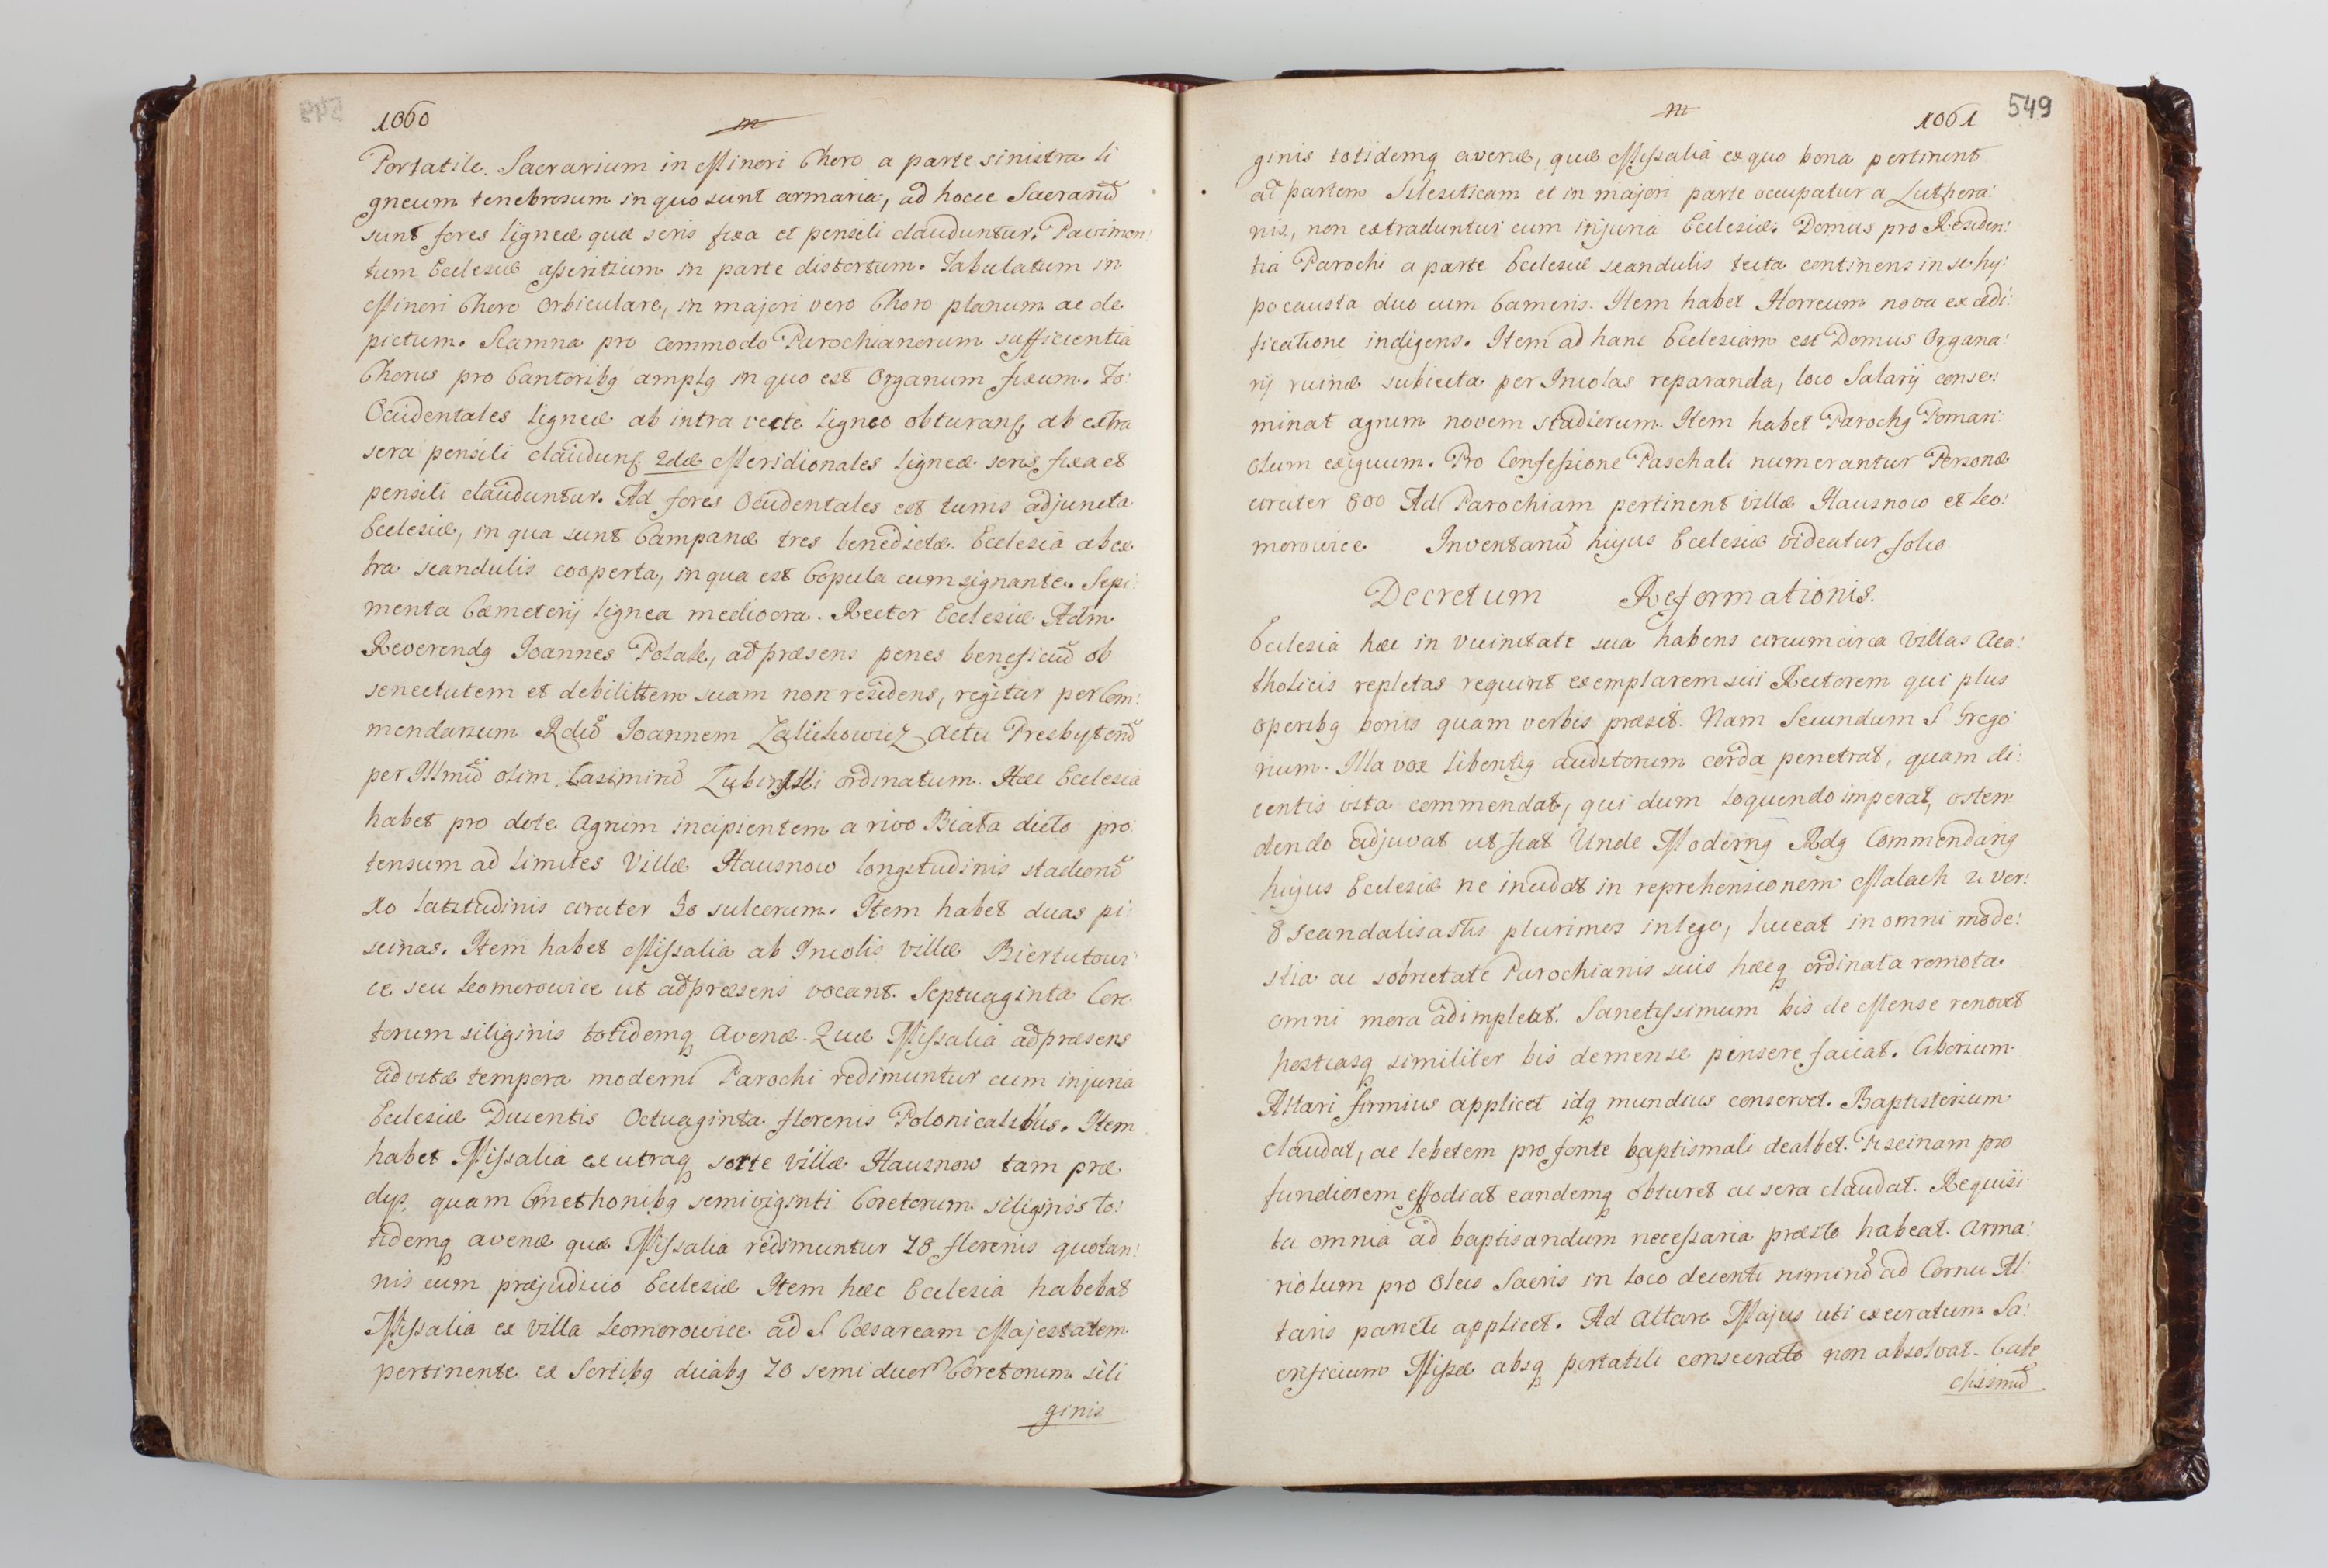 1060
m
Portatile. Sacrarium in Minori Choro a parte sinistra li
gneum tenebrosum in quo sunt armaria, ad hocce Sacrariū
sunt fores ligneæ quæ seris fixa et pensili clauduntur. Pavimen:
tum Ecclesiæ asseritium in parte distortum. Tabulatum in
Minori Choro Orbiculare, in majori vero Choro planum ac de
pictum. Scamna pro commodo Parochianorum sufficientia
Chorus pro Cantoribꝯ amplꝯ in quo est Organum fixum. Fo:
Occidentales ligneæ ab intra vecte ligneo obturanꝭ ab extra
sera pensili claudunꝭ 2dæ Meridionales ligneæ seris fixa et
pensili clauduntur. Ad fores Occidentales est turris adjuncta
Ecclesiæ, in qua sunt Campanæ tres benedictæ. Ecclesia ab ex
tra scandulis cooperta, in qua est Copula cum signante. Sepi:
menta Cæmeterij lignea mediocra. Rector Ecclesiæ Adm
Reverendꝯ Joannes Polak, ad præsens penes beneficiū ob
senectutem et debilittem suam non residens, regitur per Com:
mendarium Rdū Joannem Zalichowicz Actu Presbyterū
per Illmū olim Casimirū Łubinski ordinatum. Hæc Ecclesia
habet pro dote agrum incipientem a rivo Biała dicto pro:
tensum ad limites Villæ Hausnow longitudinis stadiorū
xo latitudinis circiter 30 sulcorum. Item habet duas pi:
scinas. Item habet Missalia ab Incolis villæ Biertutowi
ce seu Leomorowice ut ad præsens vocant. Septuaginta Core
torum siliginis totidemq avenæ. Quæ Missalia ad præsens
ad vitæ tempora moderni Parochi redimuntur cum injuria
Ecclesiæ Ducentis Octuaginta florenis Polonicalibus. Item
habet Missalia ex utraq sorte villæ Hausnow tam præ
dys, quam Cmethonibꝯ semiviginti Coretorum siliginis to:
tidemq avenæ quæ Missalia redimuntur 78 florenis quotan:
nis cum præjudicio Ecclesiæ Item hæc Ecclesia habebat
Missalia ex villa Leomorowice ad S Cæsaream Majestatem
pertinente ex Sortibꝯ duabꝯ 70 semi duor Coretorum sili
ginis
m
1061
549
ginis totidemq avenæ, quæ Missalia ex quo bona pertinent
ad partem Silesiticam et in majori parte occupatur a Luthera:
nis, non extraduntur cum injuria Ecclesiæ. Domus pro Residen:
tia Parochi a parte Ecclesiæ scandulis tecta continens in se hy:
pocausta duo cum Cameris. Item habet Horreum nova exædi:
ficatione indigens. Item ad hanc Ecclesiam est Domus Organa:
rij ruinæ subiecta per Incolas reparanda, loco Salarij conse:
minat agrum novem stadiorum. Item habet Parochꝯ Pomari:
olum exiguum. Pro Confessione Paschali numerantur Personæ
circiter 800 Ad Parochiam pertinent villæ Hausnow et Leo:
morowice Inventariū hujus Ecclesiæ videatur folio
Decretum Reformationis.
Ecclesia hæc in vicinitate sua habens circumcirca Villas Aca:
tholicis repletas requirit exemplarem sui Rectorem qui plus
operibꝯ bonis quam verbis præsit. Nam Secundum S Grego
rium. Illa vox libentiꝯ auditorum corda penetrat, quam di:
centis vita commendat, qui dum loquendo imperat, osten
dendo adjuvat ut fiat Unde Modernꝯ Rdꝯ Commendariꝯ
hujus Ecclesiæ ne incidat in reprehensionem Malach 2 ver:
8 scandalisastis plurimos in lege, luceat in omni mode:
stia ac sobrietate Parochianis suis hæcq ordinata remota
omni mora adimpleat. Sanctissimum bis de Mense renovet
hostiasq similiter bis de mense pinsere faciat. Ciborium
Altari firmius applicet idq mundius conservet. Baptisterium
claudat, ac lebetem pro fonte baptismali dealbet. Piscinam pro
fundiorem effodiat eandemq obturet ac sera claudat. Requisi
ta omnia ad baptisandum necessaria præsto habeat. Arma:
riolum pro Oleis Sacris in loco decenti nimirū ad Cornu Al:
taris parieti applicet. Ad Altare Majus uti execratum Sa:
crificium Missæ absq portatili consecrato non absolvat. Cate
chismū